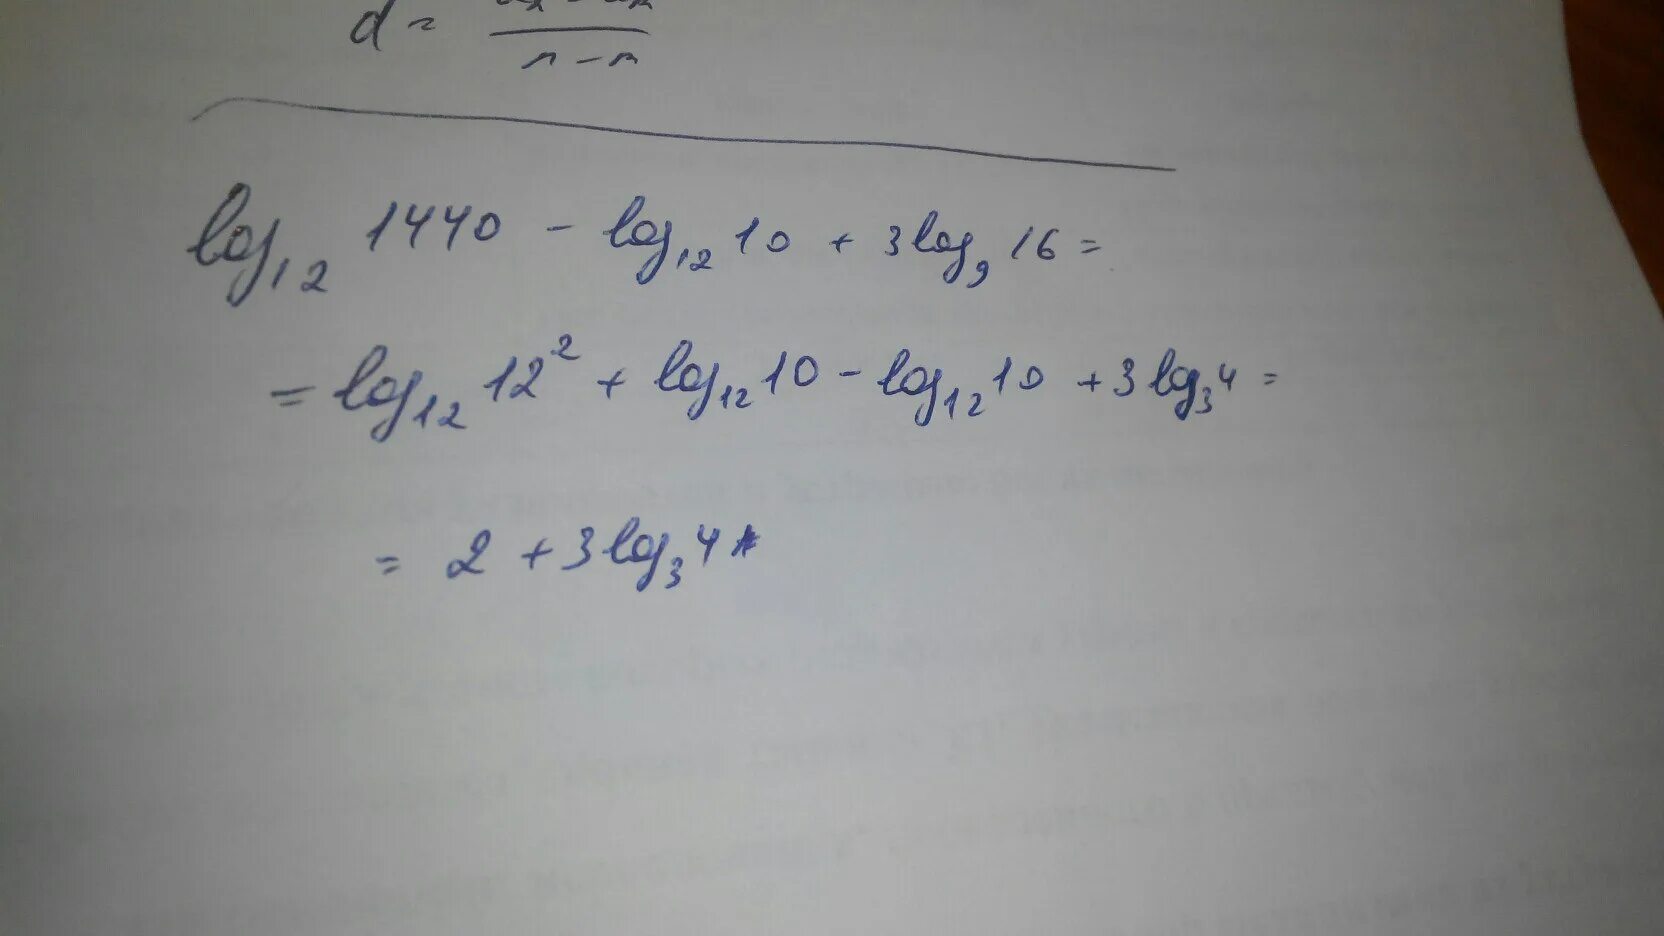 d = ──── n - m
log₁₂ 1440 - log₁₂ 10 + 3 log₉ 16 =
= log₁₂ 12² + log₁₂ 10 - log₁₂ 10 + 3 log₃ 4 =
= 2 + 3 log₃ 4